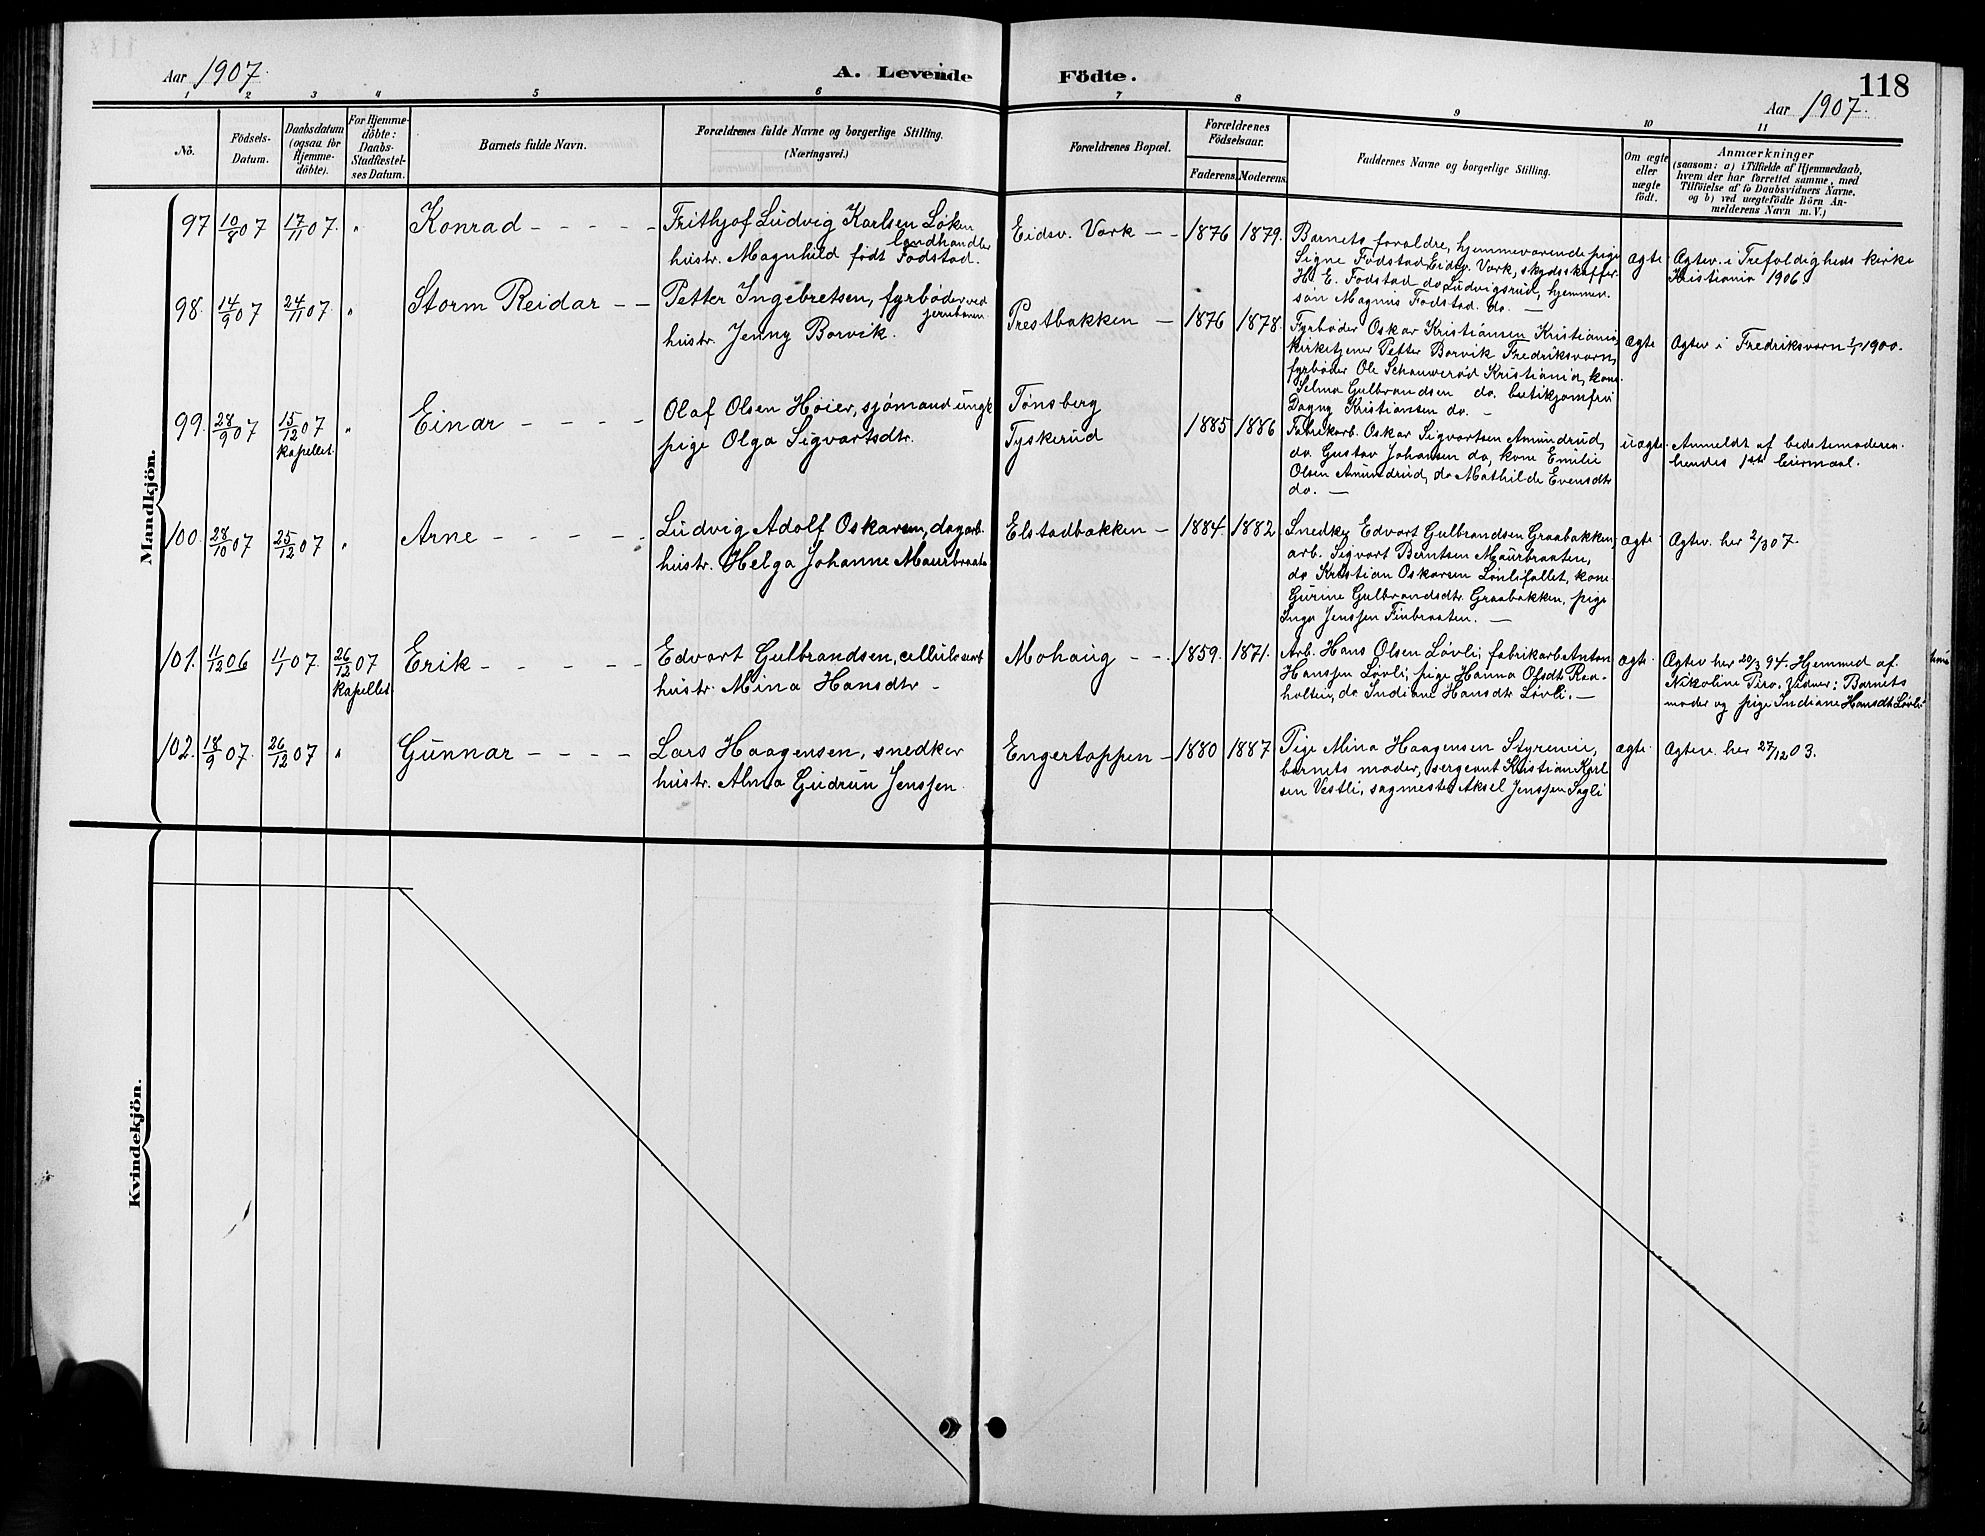 Aar 1907.
A. Levende Födte.
118
Aar 1907.
1 2 3 4 5 6 7 8 9 10 11
Nö.
Födsels-Datum.
Daabsdatum (ogsaa for Hjemme-döbte).
For Hjemme-döbte: Daabs-Stadfæstel-ses Datum.
Barnets fulde Navn.
Forældrenes fulde Navne og borgerlige Stilling.
(Næringsvei.)
Forældrenes Bopæl.
Forældrenes Födselsaar.
Faderens. Moderens.
Faddernes Navne og borgerlige Stilling.
Om ægte eller uægte födt.
Anmærkninger
(saasom: a) i Tilfælde af Hjemmedaab,
hvem der har forrettet samme, med
Tilföielse af to Daabsvidners Navne.
og b) ved uægtefödte Börn An-
melderens Navn m. V.)
Mandkjön.
97 10/8 07 17/11 07. " Konrad - - - - -
Frithjof Ludvig Karlsen Løken
landhandler
hustr. Magnhild født Fodstad.
Eidsv. Værk - - 1876 1879.
Barnets forældre, hjemmeværende pige
Signe Fodstad Eidsv. Værk, skydsskaffer
H. E. Fodstad do Ludvigsrud, hjemmev.
søn Magnus Fodstad. do. -
ægte
Ægtev. i Trefoldigheds kirke
Kristiania 1906.
98. 14/9 07 24/11 07. " Storm Reidar - -
Petter Ingebretsen, fyrbøder ved
jernbanen
hustr. Jenny Borvik.
Præstbakken - 1876 1878.
Fyrbøder Oskar Kristiansen Kristiania,
kirketjener Petter Borvik Fredriksværn,
fyrbøder Ole Schauwerød Kristiania, kone
Selma Gulbrandsen do, butikjomfru
Dagny Kristiansen do. -
ægte
Ægtev i Fredriksværn 1900.
99. 28/9 07 15/12 07 kapellet. " Einar - - - -
Olaf Olsen Høier, sjømand ungk
pige Olga Sigvartsdtr.
Tønsberg
Tyskerud
1885 1886
Fabrikarb. Oskar Sigvartsen Amundrud,
do. Gustav Johansen do, kone Emilie
Olsen Amundrud, do Mathilde Evensdtr
do. -
uægte
Anmeldt af bedstemoderen.
hendes 1ste leiermaal.
100. 28/10 07 25/12 07 " Arne - - - - -
Ludvig Adolf Oskarsen, dagarb.
hustr. Helga Johanne Maurbraate
Elstadbakken - 1884. 1882
Snedker Edvart Gulbrandsen Graabakken,
arb. Sigvart Berntsen Maurbraaten,
do Kristian Oskarsen Lønlifallet, kone
Gurine Gulbrandsdtr. Graabakken, pige
Inga Jenssen Finbraaten. -
ægte
Ægtev. her 2/3 07.
101. 11/12 06 11/1 07. 26/12 07 kapellet Erik - - - - -
Edvart Gulbrandsen, cellulosearb
hustr. Mina Hansdtr -
Mohaug - - 1859. 1871.
Arb. Hans Olsen Løvli, fabrikarb Anton
Hanssen Løvli, pige Hanna Olsdtr Rea-
holten, do Indiane Hansdtr Løvli. -
ægte
Ægtev her 20/3 94. Hjemmed af
Nikoline Piro. Vidner: Barnets
moder og pige Indiane Hansdtr Løvli.
102. 18/9 07. 26/12 07 " Gunnar - - - -
Lars Haagensen, snedker
hustr. Alma Gudrun Jenssen.
Engertoppen - 1880 1887
Pige Mina Haagensen Styrenie,
barnets moder, sergeant Kristian Karl
sen Vestli, sagmester Aksel Jenssen Sagli
ægte.
Ægtev. her 27/12 03.
Kvindekjön.